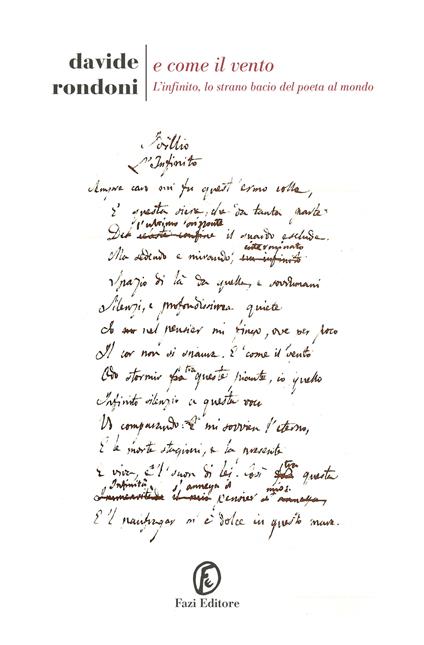 davide
rondoni
e come il vento
L'infinito, lo strano bacio del poeta al mondo
Idillio
L'Infinito
Sempre caro mi fu quest'ermo colle,
E questa siepe, che da tanta parte
l'ultimo orizzonte
De celeste confine il guardo esclude.
interminato
Ma sedendo e mirando, un infinito
Spazio di là da quella, e sovrumani
Silenzi, e profondissima quiete
Io nel pensier mi fingo, ove per poco
Il cor non si spaura. E come il vento
tra
Odo stormir fra queste piante, io quello
Infinito silenzio a questa voce
Vo comparando: E mi sovvien l'eterno,
E le morte stagioni, e la presente
E viva, e 'l suon di lei. Così
tra
questa
Infinità s'annega il mio
Immensitade il pensier
E 'l naufragar m'è dolce in questo mare.
Fe
Fazi Editore